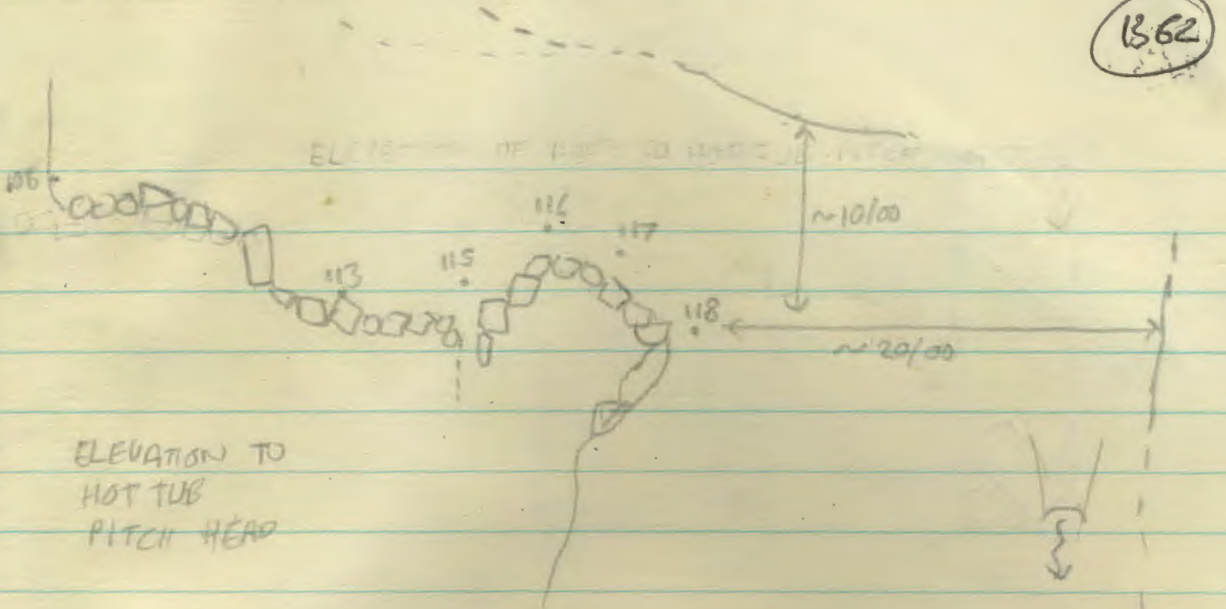 B62
~10/00
116
117
115
113
118
~20/00
ELEVATION TO
HOT TUB
PITCH HEAD